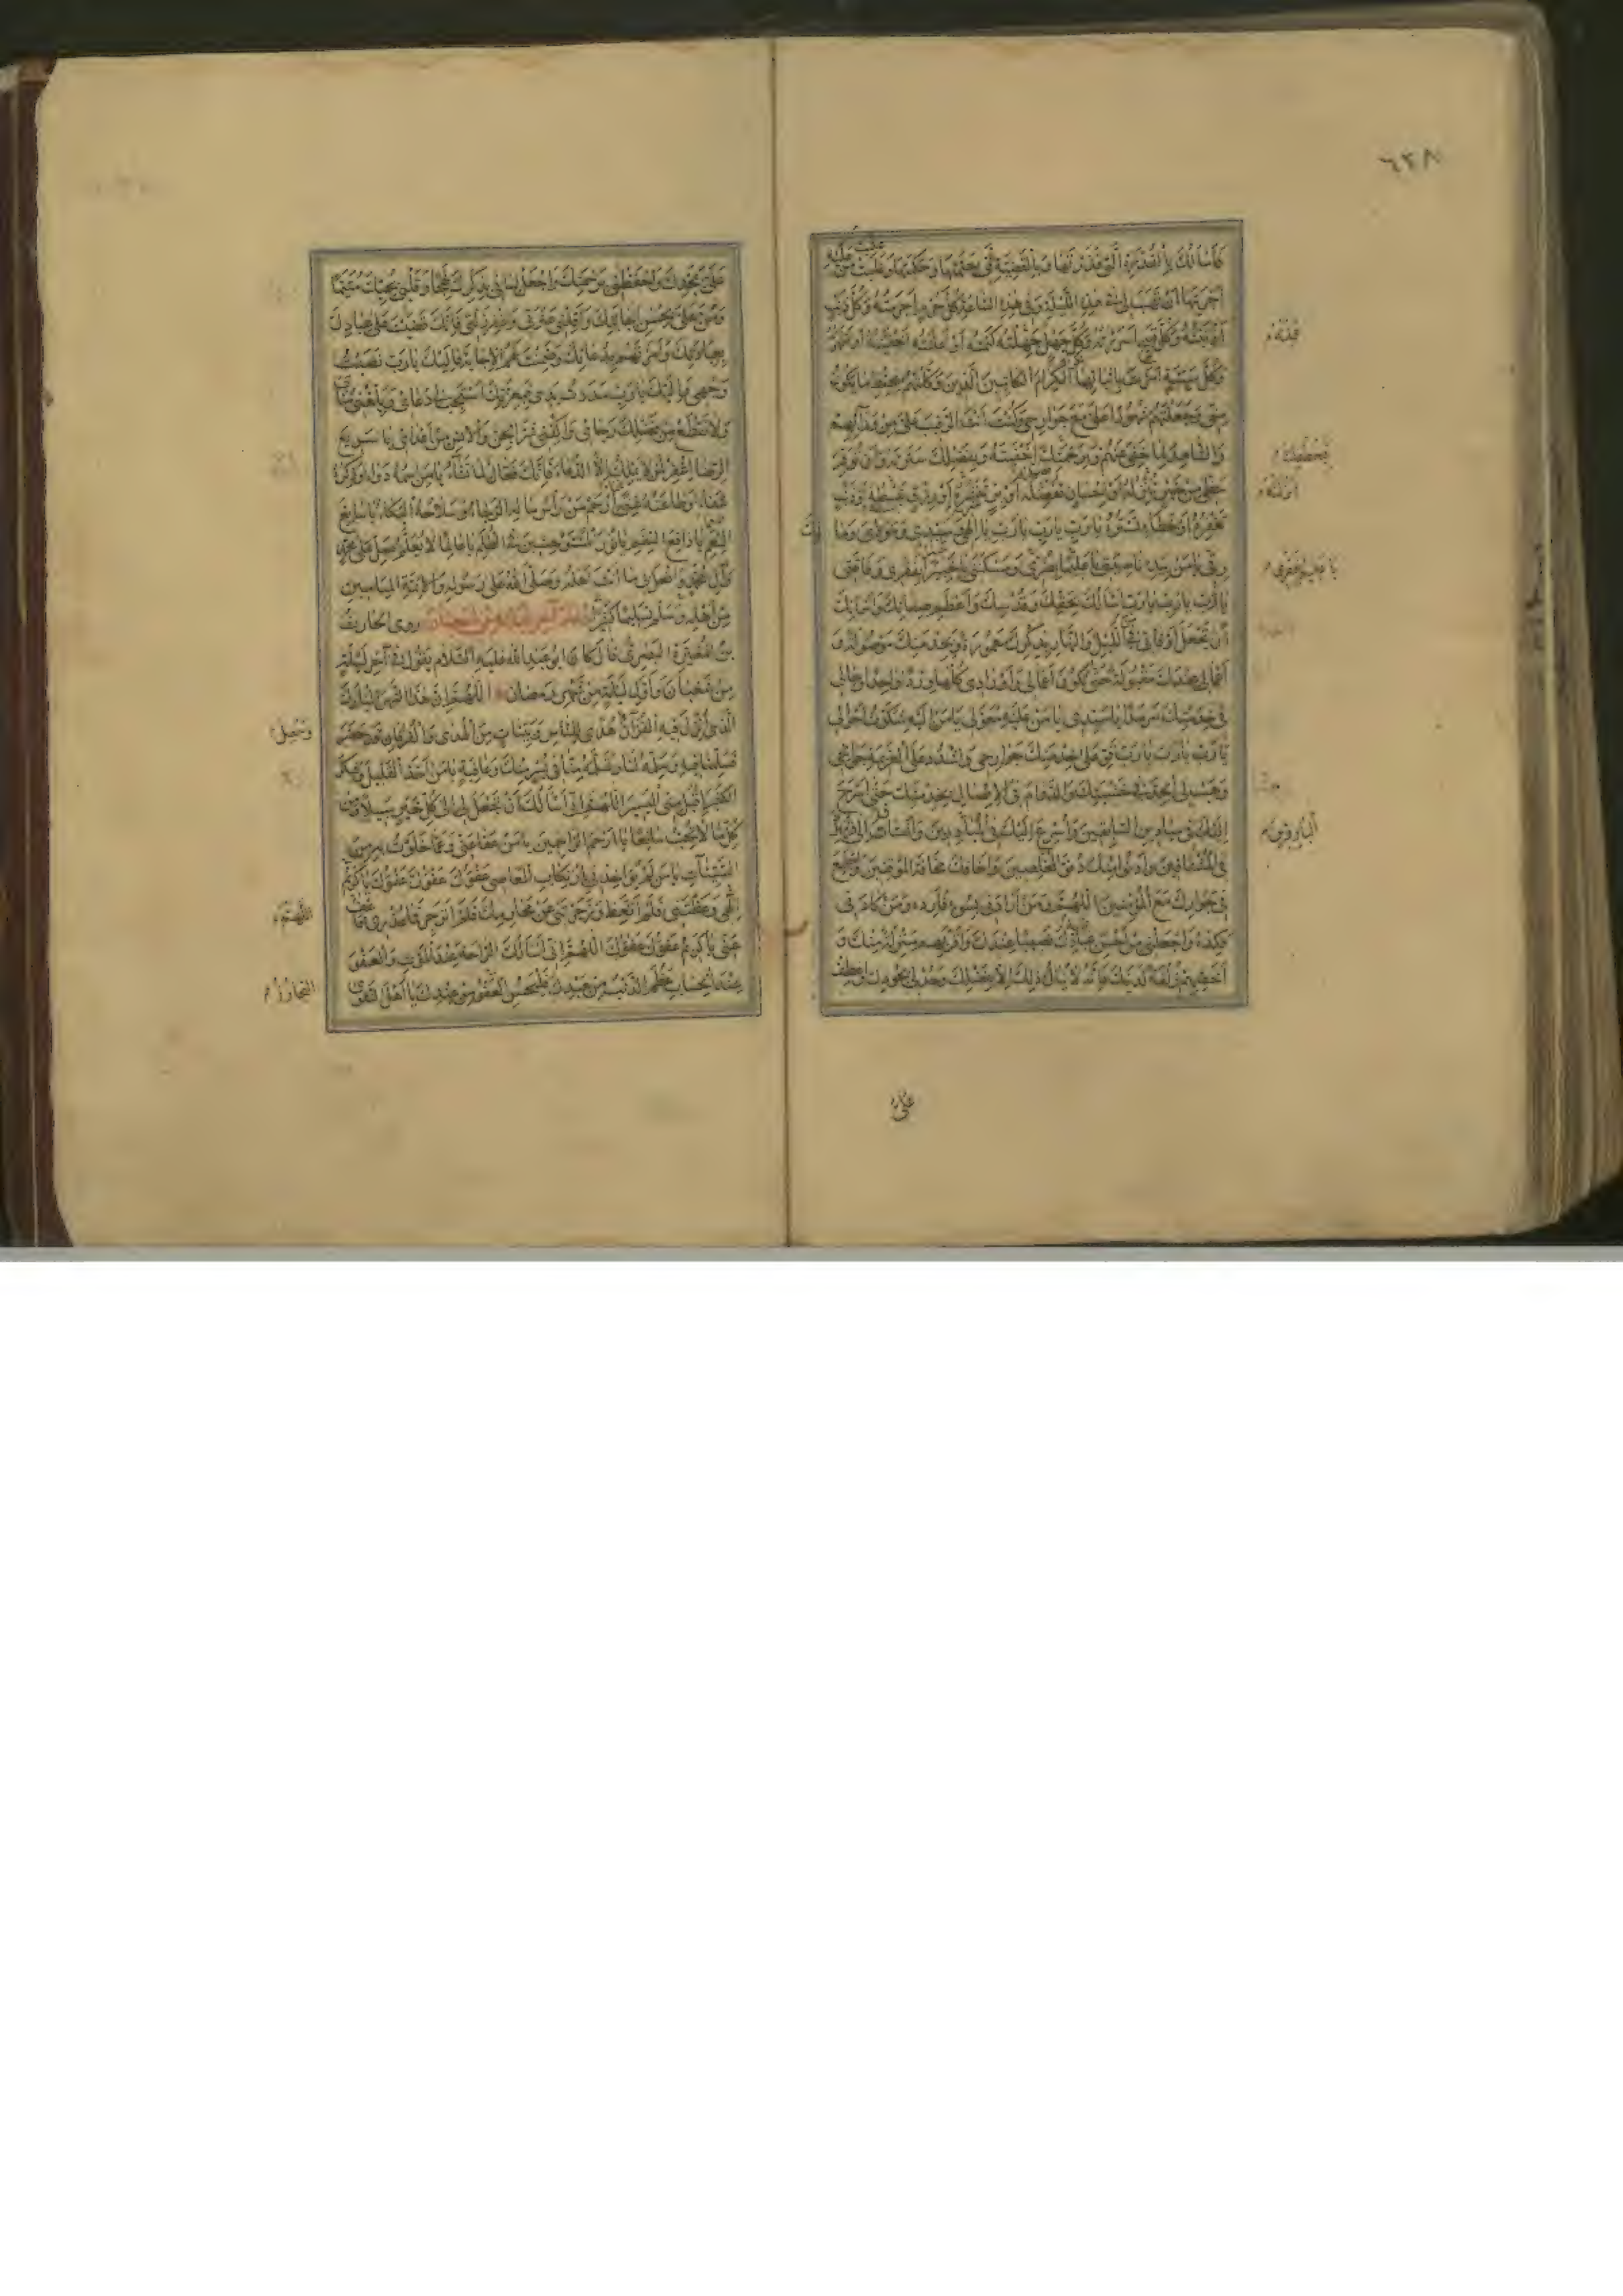 ٦٢٨
فَأَسْأَلُكَ بِالْقُدْرَةِ الَّتِي قَدَّرْتَهَا وَبِالْقَضِيَّةِ الَّتِي حَتَمْتَهَا وَحَكَمْتَهَا وَغَلَبْتَ مَنْ عَلَيْهِ
أَجْرَيْتَهَا أَنْ تَهَبَ لِي فِي هَذِهِ اللَّيْلَةِ وَفِي هَذِهِ السَّاعَةِ كُلَّ جُرْمٍ أَجْرَمْتُهُ وَكُلَّ ذَنْبٍ
أَذْنَبْتُهُ وَكُلَّ قَبِيحٍ أَسْرَرْتُهُ وَكُلَّ جَهْلٍ عَمِلْتُهُ كَتَمْتُهُ أَوْ أَعْلَنْتُهُ أَخْفَيْتُهُ أَوْ أَظْهَرْتُهُ
وَكُلَّ سَيِّئَةٍ أَمَرْتَ بِإِثْبَاتِهَا الْكِرَامَ الْكَاتِبِينَ الَّذِينَ وَكَّلْتَهُمْ بِحِفْظِ مَا يَكُونُ
مِنِّي وَجَعَلْتَهُمْ شُهُودًا عَلَيَّ مَعَ جَوَارِحِي وَكُنْتَ أَنْتَ الرَّقِيبَ عَلَيَّ مِنْ وَرَائِهِمْ
وَالشَّاهِدَ لِمَا خَفِيَ عَنْهُمْ وَبِرَحْمَتِكَ أَخْفَيْتَهُ وَبِفَضْلِكَ سَتَرْتَهُ وَأَنْ تُوَفِّرَ
حَظِّي مِنْ كُلِّ خَيْرٍ تُنْزِلُهُ أَوْ إِحْسَانٍ تُفَضِّلُهُ أَوْ بِرٍّ تَنْشُرُهُ أَوْ رِزْقٍ تَبْسُطُهُ أَوْ ذَنْبٍ
تَغْفِرُهُ أَوْ خَطَاءٍ تَسْتُرُهُ يَا رَبِّ يَا رَبِّ يَا رَبِّ يَا إِلَهِي وَسَيِّدِي وَمَوْلَايَ وَمَالِكَ
رِقِّي يَا مَنْ بِيَدِهِ نَاصِيَتِي يَا عَلِيمًا بِضُرِّي وَمَسْكَنَتِي يَا خَبِيرًا بِفَقْرِي وَفَاقَتِي
يَا رَبِّ يَا رَبِّ يَا رَبِّ أَسْأَلُكَ بِحَقِّكَ وَقُدْسِكَ وَأَعْظَمِ صِفَاتِكَ وَأَسْمَائِكَ
أَنْ تَجْعَلَ أَوْقَاتِي فِي اللَّيْلِ وَالنَّهَارِ بِذِكْرِكَ مَعْمُورَةً وَبِخِدْمَتِكَ مَوْصُولَةً وَ
أَعْمَالِي عِنْدَكَ مَقْبُولَةً حَتَّى يَكُونَ أَعْمَالِي وَأَوْرَادِي كُلُّهَا وِرْدًا وَاحِدًا وَحَالِي
فِي خِدْمَتِكَ سَرْمَدًا يَا سَيِّدِي يَا مَنْ عَلَيْهِ مُعَوَّلِي يَا مَنْ إِلَيْهِ شَكَوْتُ أَحْوَالِي
يَا رَبِّ يَا رَبِّ يَا رَبِّ قَوِّ عَلَى خِدْمَتِكَ جَوَارِحِي وَاشْدُدْ عَلَى الْعَزِيمَةِ جَوَانِحِي
وَهَبْ لِيَ الْجِدَّ فِي خَشْيَتِكَ وَالدَّوَامَ فِي الِاتِّصَالِ بِخِدْمَتِكَ حَتَّى أَسْرَحَ
إِلَيْكَ فِي مَيَادِينِ السَّابِقِينَ وَأُسْرِعَ إِلَيْكَ فِي الْمُبَادِرِينَ وَأَشْتَاقَ إِلَى قُرْبِكَ
فِي الْمُشْتَاقِينَ وَأَدْنُوَ مِنْكَ دُنُوَّ الْمُخْلِصِينَ وَأَخَافَكَ مَخَافَةَ الْمُوقِنِينَ وَأَجْتَمِعَ
فِي جِوَارِكَ مَعَ الْمُؤْمِنِينَ اللَّهُمَّ وَمَنْ أَرَادَنِي بِسُوءٍ فَأَرِدْهُ وَمَنْ كَادَنِي
فَكِدْهُ وَاجْعَلْنِي مِنْ أَحْسَنِ عِبَادِكَ نَصِيبًا عِنْدَكَ وَأَقْرَبِهِمْ مَنْزِلَةً مِنْكَ وَ
أَخَصِّهِمْ زُلْفَةً لَدَيْكَ فَإِنَّهُ لَا يُنَالُ ذَلِكَ إِلَّا بِفَضْلِكَ وَجُدْ لِي بِجُودِكَ وَاعْطِفْ
عَلَيَّ
عَلَيَّ بِمَجْدِكَ وَاحْفَظْنِي بِرَحْمَتِكَ وَاجْعَلْ لِسَانِي بِذِكْرِكَ لَهِجًا وَقَلْبِي بِحُبِّكَ مُتَيَّمًا
وَمُنَّ عَلَيَّ بِحُسْنِ إِجَابَتِكَ وَأَقِلْنِي عَثْرَتِي وَاغْفِرْ زَلَّتِي فَإِنَّكَ قَضَيْتَ عَلَى عِبَادِكَ
بِعِبَادَتِكَ وَأَمَرْتَهُمْ بِدُعَائِكَ وَضَمِنْتَ لَهُمُ الْإِجَابَةَ فَإِلَيْكَ يَا رَبِّ نَصَبْتُ
وَجْهِي وَإِلَيْكَ يَا رَبِّ مَدَدْتُ يَدِي فَبِعِزَّتِكَ اسْتَجِبْ لِي دُعَائِي وَبَلِّغْنِي مُنَايَ
وَلَا تَقْطَعْ مِنْ فَضْلِكَ رَجَائِي وَاكْفِنِي شَرَّ الْجِنِّ وَالْإِنْسِ مِنْ أَعْدَائِي يَا سَرِيعَ
الرِّضَا اغْفِرْ لِمَنْ لَا يَمْلِكُ إِلَّا الدُّعَاءَ فَإِنَّكَ فَعَّالٌ لِمَا تَشَاءُ يَا مَنِ اسْمُهُ دَوَاءٌ وَذِكْرُهُ
شِفَاءٌ وَطَاعَتُهُ غِنًى ارْحَمْ مَنْ رَأْسُ مَالِهِ الرَّجَاءُ وَسِلَاحُهُ الْبُكَاءُ يَا سَابِغَ
النِّعَمِ يَا دَافِعَ النِّقَمِ يَا نُورَ الْمُسْتَوْحِشِينَ فِي الظُّلَمِ يَا عَالِمًا لَا يُعَلَّمُ صَلِّ عَلَى مُحَمَّدٍ
وَآلِ مُحَمَّدٍ وَافْعَلْ بِي مَا أَنْتَ أَهْلُهُ وَصَلَّى اللَّهُ عَلَى رَسُولِهِ وَالْأَئِمَّةِ الْمَيَامِينِ
مِنْ أَهْلِهِ وَسَلَّمَ تَسْلِيمًا كَثِيرًا روى الحارث
بن المغيرة النصري قال كان ابو عبد الله عليه السلام يقول في آخر ليلة
من شعبان واول ليلة من شهر رمضان اللَّهُمَّ إِنَّ هَذَا الشَّهْرَ الْمُبَارَكَ
الَّذِي أُنْزِلَ فِيهِ الْقُرْآنُ هُدًى لِلنَّاسِ وَبَيِّنَاتٍ مِنَ الْهُدَى وَالْفُرْقَانِ قَدْ حَضَرَ
فَسَلِّمْنَا فِيهِ وَسَلِّمْهُ لَنَا وَتَسَلَّمْهُ مِنَّا فِي يُسْرٍ مِنْكَ وَعَافِيَةٍ يَا مَنْ أَخَذَ الْقَلِيلَ وَشَكَرَ
الْكَثِيرَ اقْبَلْ مِنِّي الْيَسِيرَ اللَّهُمَّ إِنِّي أَسْأَلُكَ أَنْ تَجْعَلَ لِي إِلَى كُلِّ خَيْرٍ سَبِيلًا وَمِنْ
كُلِّ مَا لَا تُحِبُّ مَانِعًا يَا أَرْحَمَ الرَّاحِمِينَ يَا مَنْ عَفَا عَنِّي وَعَمَّا خَلَوْتُ بِهِ مِنَ
السَّيِّئَاتِ يَا مَنْ لَمْ يُؤَاخِذْنِي بِارْتِكَابِ الْمَعَاصِي عَفْوَكَ عَفْوَكَ عَفْوَكَ يَا كَرِيمُ
إِلَهِي وَعَظْتَنِي فَلَمْ أَتَّعِظْ وَزَجَرْتَنِي عَنْ مَحَارِمِكَ فَلَمْ أَنْزَجِرْ فَمَا عُذْرِي فَاعْفُ
عَنِّي يَا كَرِيمُ عَفْوَكَ عَفْوَكَ اللَّهُمَّ إِنِّي أَسْأَلُكَ الرَّاحَةَ عِنْدَ الْمَوْتِ وَالْعَفْوَ
عِنْدَ الْحِسَابِ عَظُمَ الذَّنْبُ مِنْ عَبْدِكَ فَلْيَحْسُنِ الْعَفْوُ مِنْ عِنْدِكَ يَا أَهْلَ التَّقْوَى
اللَّهُمَّ
التَّجَاوُزُ